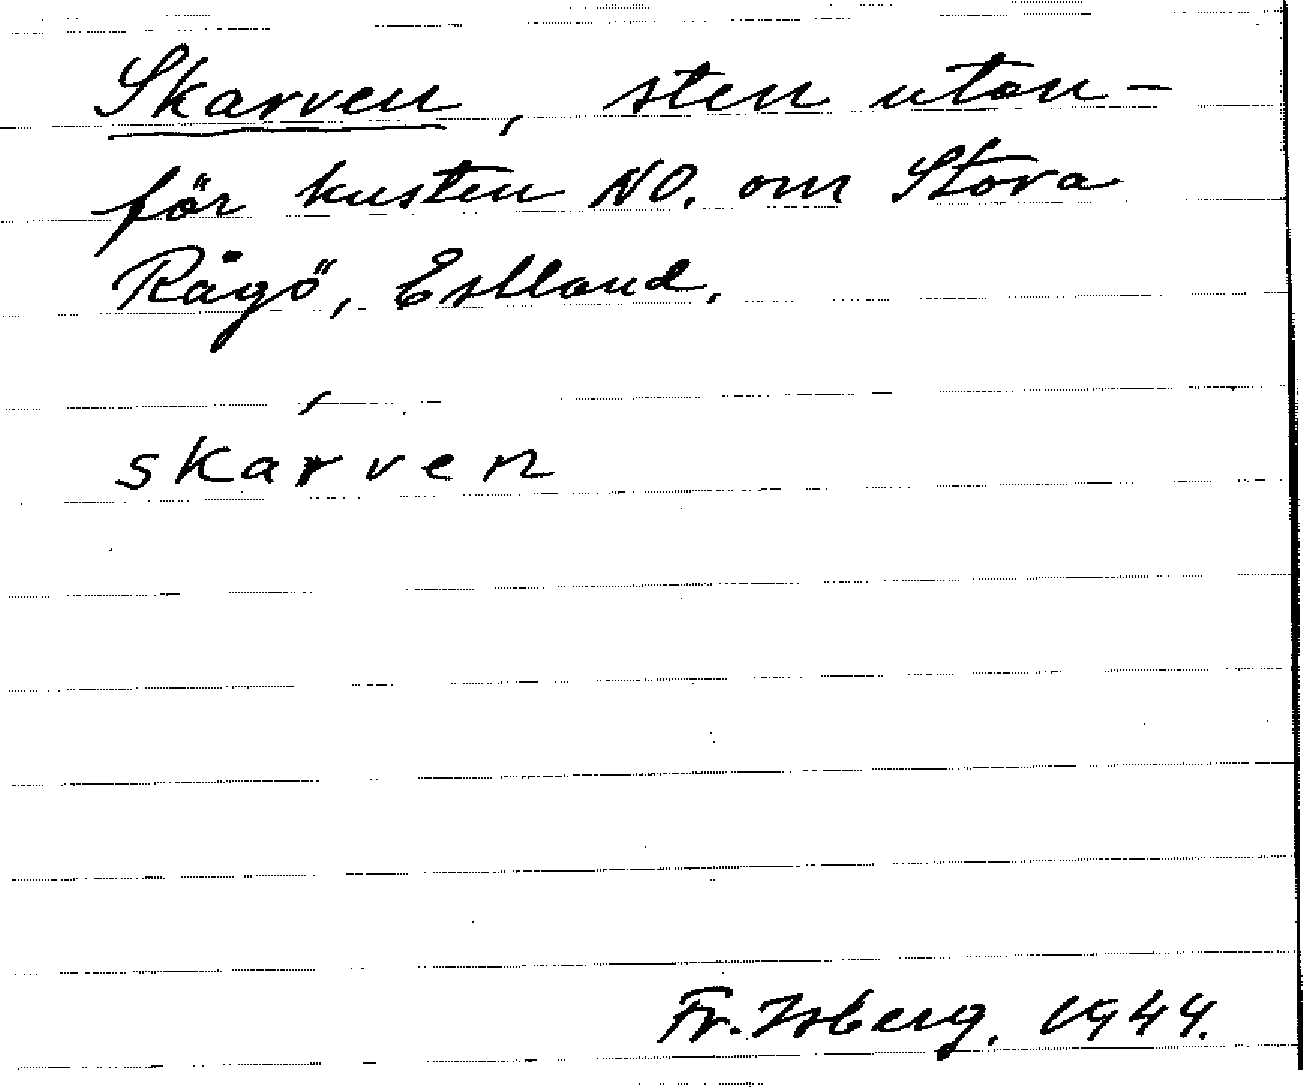 Skarven, sten utan-
för kusten NO. om Stora
Rågö, Estland.
skárven
Fr. Isberg. 1944.